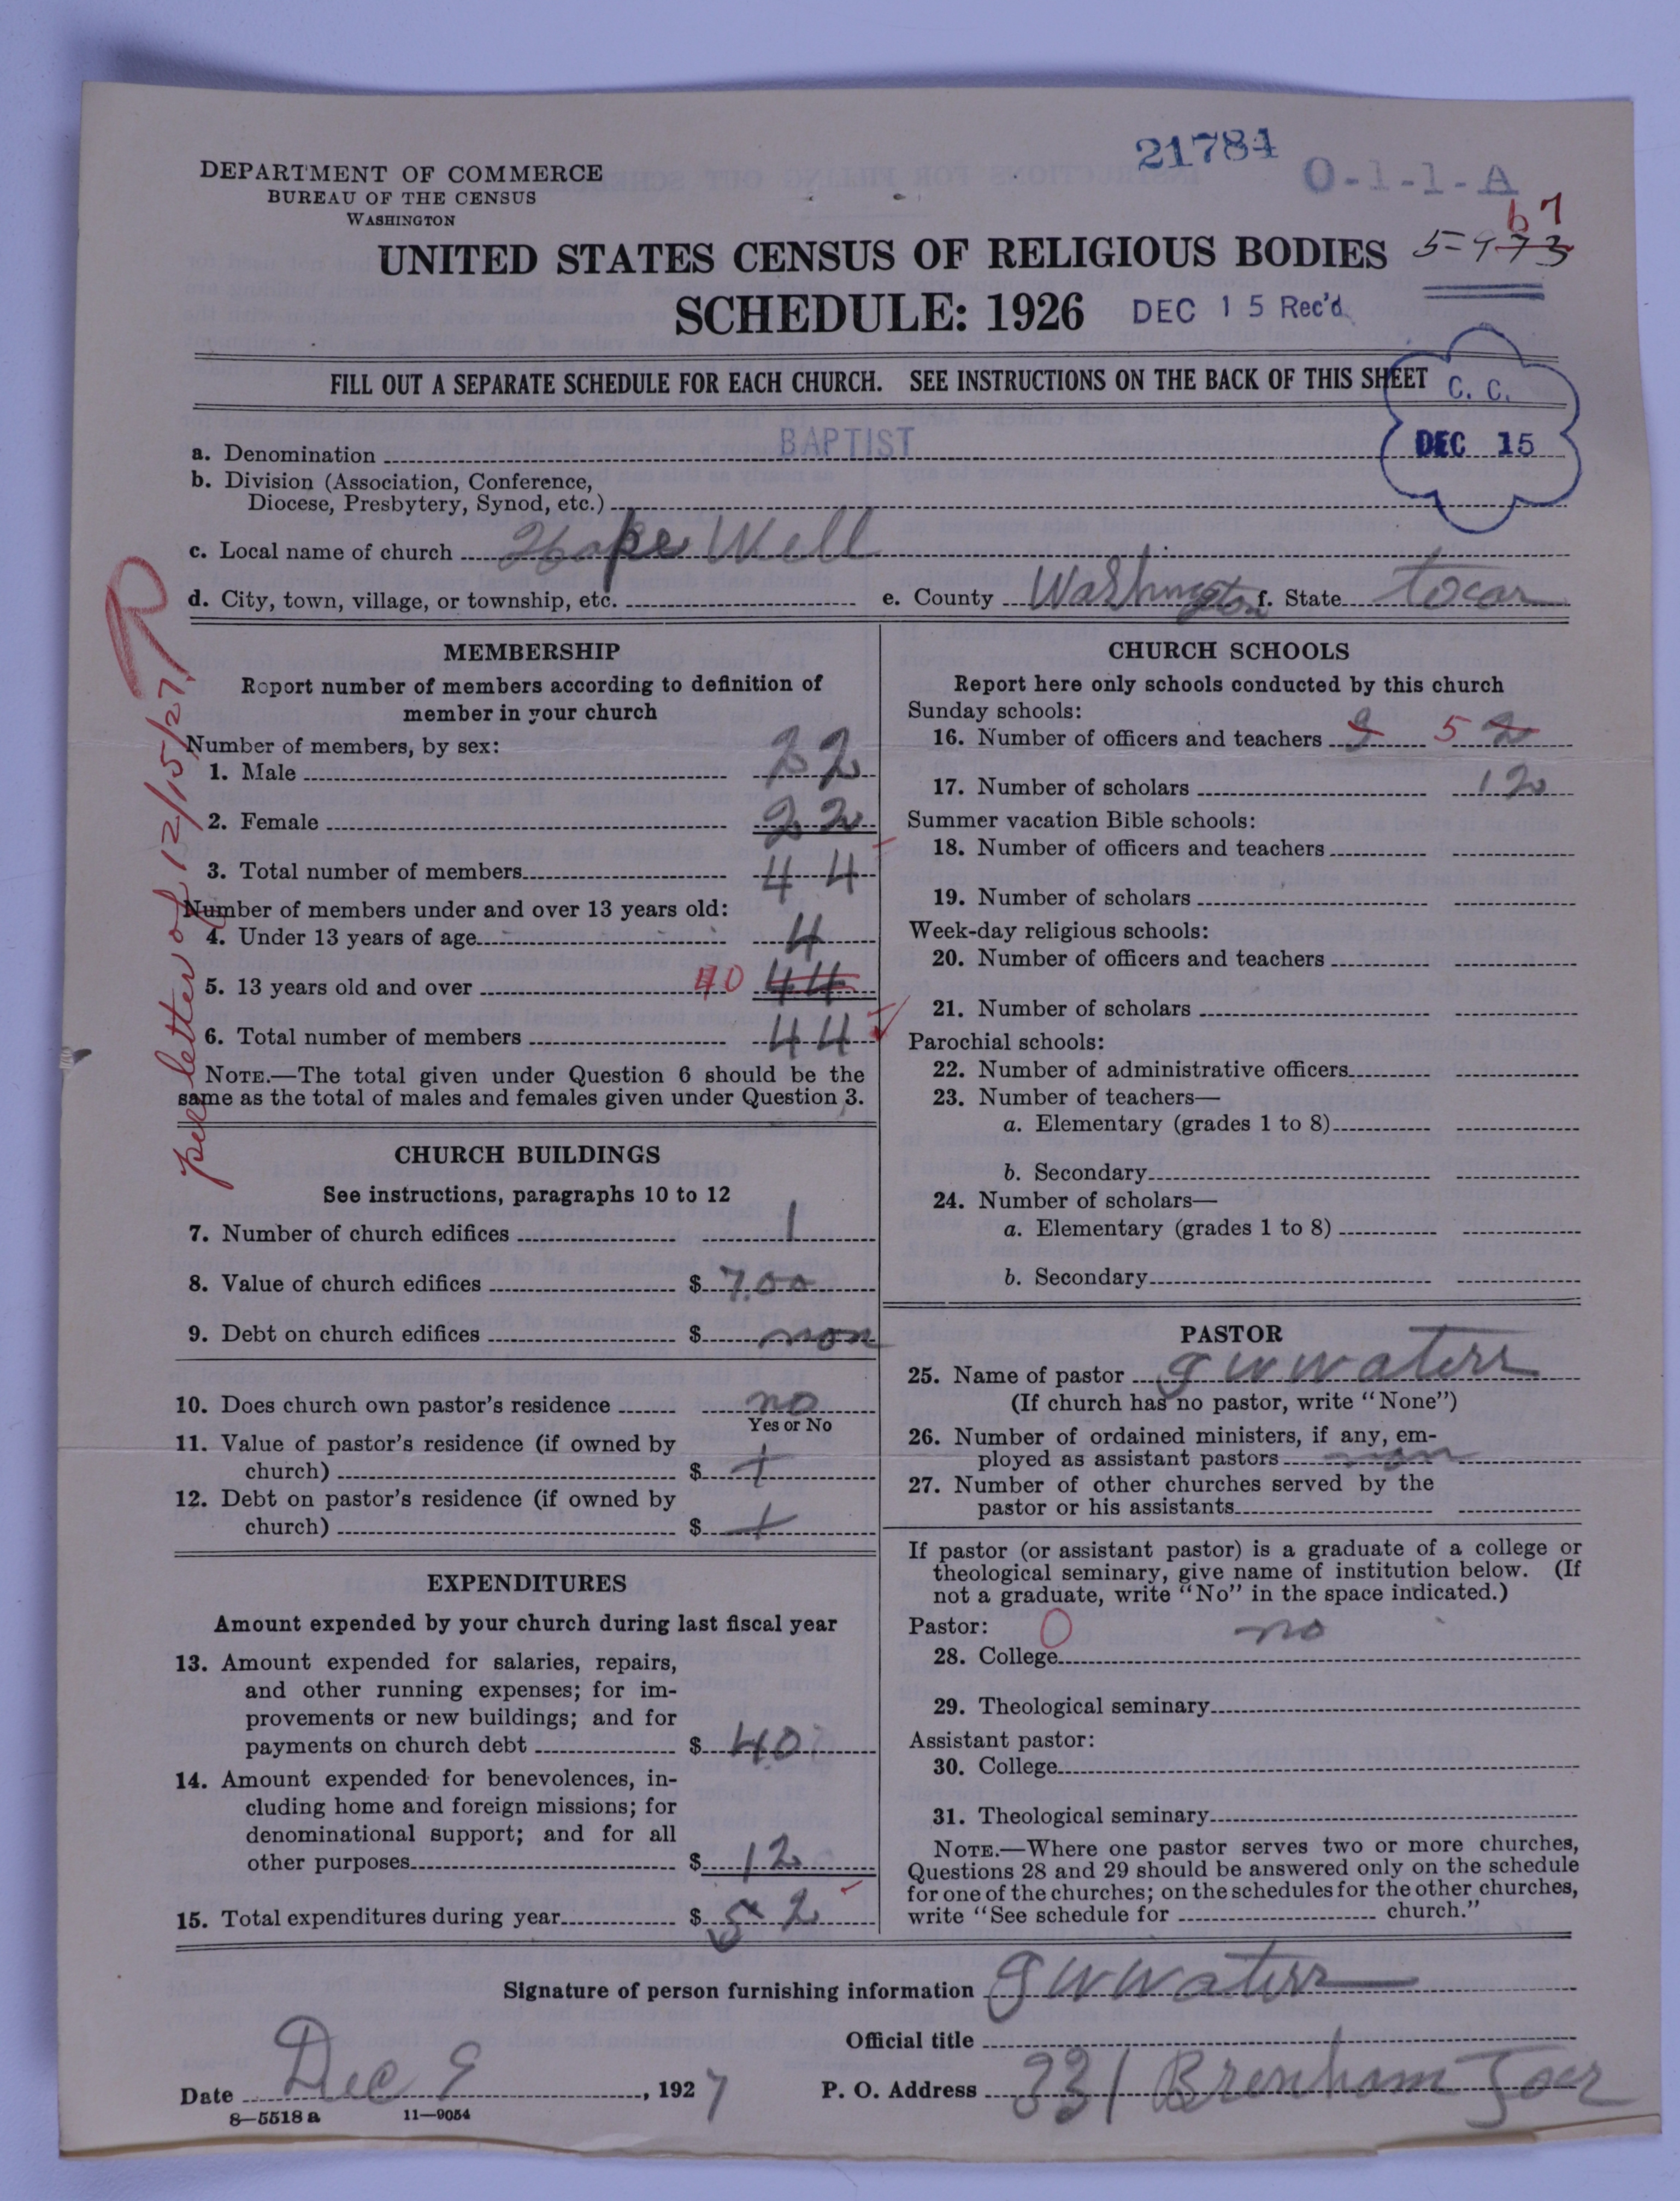 21784
O-1-1-A
DEPARTMENT OF COMMERCE
BUREAU OF THE CENSUS
WASHINGTON
67
UNITED STATES CENSUS OF RELIGIOUS BODIES 5-973
SCHEDULE: 1926 DEC 15 Rec'd
FILL OUT A SEPARATE SCHEDULE FOR EACH CHURCH. SEE INSTRUCTIONS ON THE BACK OF THIS SHEET
C. C.
DEC 15
a. Denomination BAPTIST
b. Division (Association, Conference,
Diocese, Presbytery, Synod, etc.)
c. Local name of church Hope Well
d. City, town, village, or township, etc. e. County Washington f. State
R
per letter of 12/15/27
MEMBERSHIP
Report number of members according to definition of
member in your church
Number of members, by sex:
1. Male 22
2. Female 22
3. Total number of members 44
Number of members under and over 13 years old:
4. Under 13 years of age 4
5. 13 years old and over 40 44
6. Total number of members 44
NOTE.—The total given under Question 6 should be the
same as the total of males and females given under Question 3.
CHURCH BUILDINGS
See instructions, paragraphs 10 to 12
7. Number of church edifices 1
8. Value of church edifices $ 7.00
9. Debt on church edifices $ non
10. Does church own pastor's residence no
Yes or No
11. Value of pastor's residence (if owned by
church) $ +
12. Debt on pastor's residence (if owned by
church) $ +
EXPENDITURES
Amount expended by your church during last fiscal year
13. Amount expended for salaries, repairs,
and other running expenses; for im-
provements or new buildings; and for
payments on church debt $ 40
14. Amount expended for benevolences, in-
cluding home and foreign missions; for
denominational support; and for all
other purposes $ 12
15. Total expenditures during year $ 52
CHURCH SCHOOLS
Report here only schools conducted by this church
Sunday schools:
16. Number of officers and teachers 5 2
17. Number of scholars 12
Summer vacation Bible schools:
18. Number of officers and teachers
19. Number of scholars
Week-day religious schools:
20. Number of officers and teachers
21. Number of scholars
Parochial schools:
22. Number of administrative officers
23. Number of teachers—
a. Elementary (grades 1 to 8)
b. Secondary
24. Number of scholars—
a. Elementary (grades 1 to 8)
b. Secondary
PASTOR
25. Name of pastor G W Waters
(If church has no pastor, write "None")
26. Number of ordained ministers, if any, em-
ployed as assistant pastors non
27. Number of other churches served by the
pastor or his assistants
If pastor (or assistant pastor) is a graduate of a college or
theological seminary, give name of institution below. (If
not a graduate, write "No" in the space indicated.)
Pastor: 0 no
28. College
29. Theological seminary
Assistant pastor:
30. College
31. Theological seminary
NOTE.—Where one pastor serves two or more churches,
Questions 28 and 29 should be answered only on the schedule
for one of the churches; on the schedules for the other churches,
write "See schedule for church."
Signature of person furnishing information G W Waters
Official title
Date Dec 9, 1927 P. O. Address 331 Brenham
8—5518a 11—9054